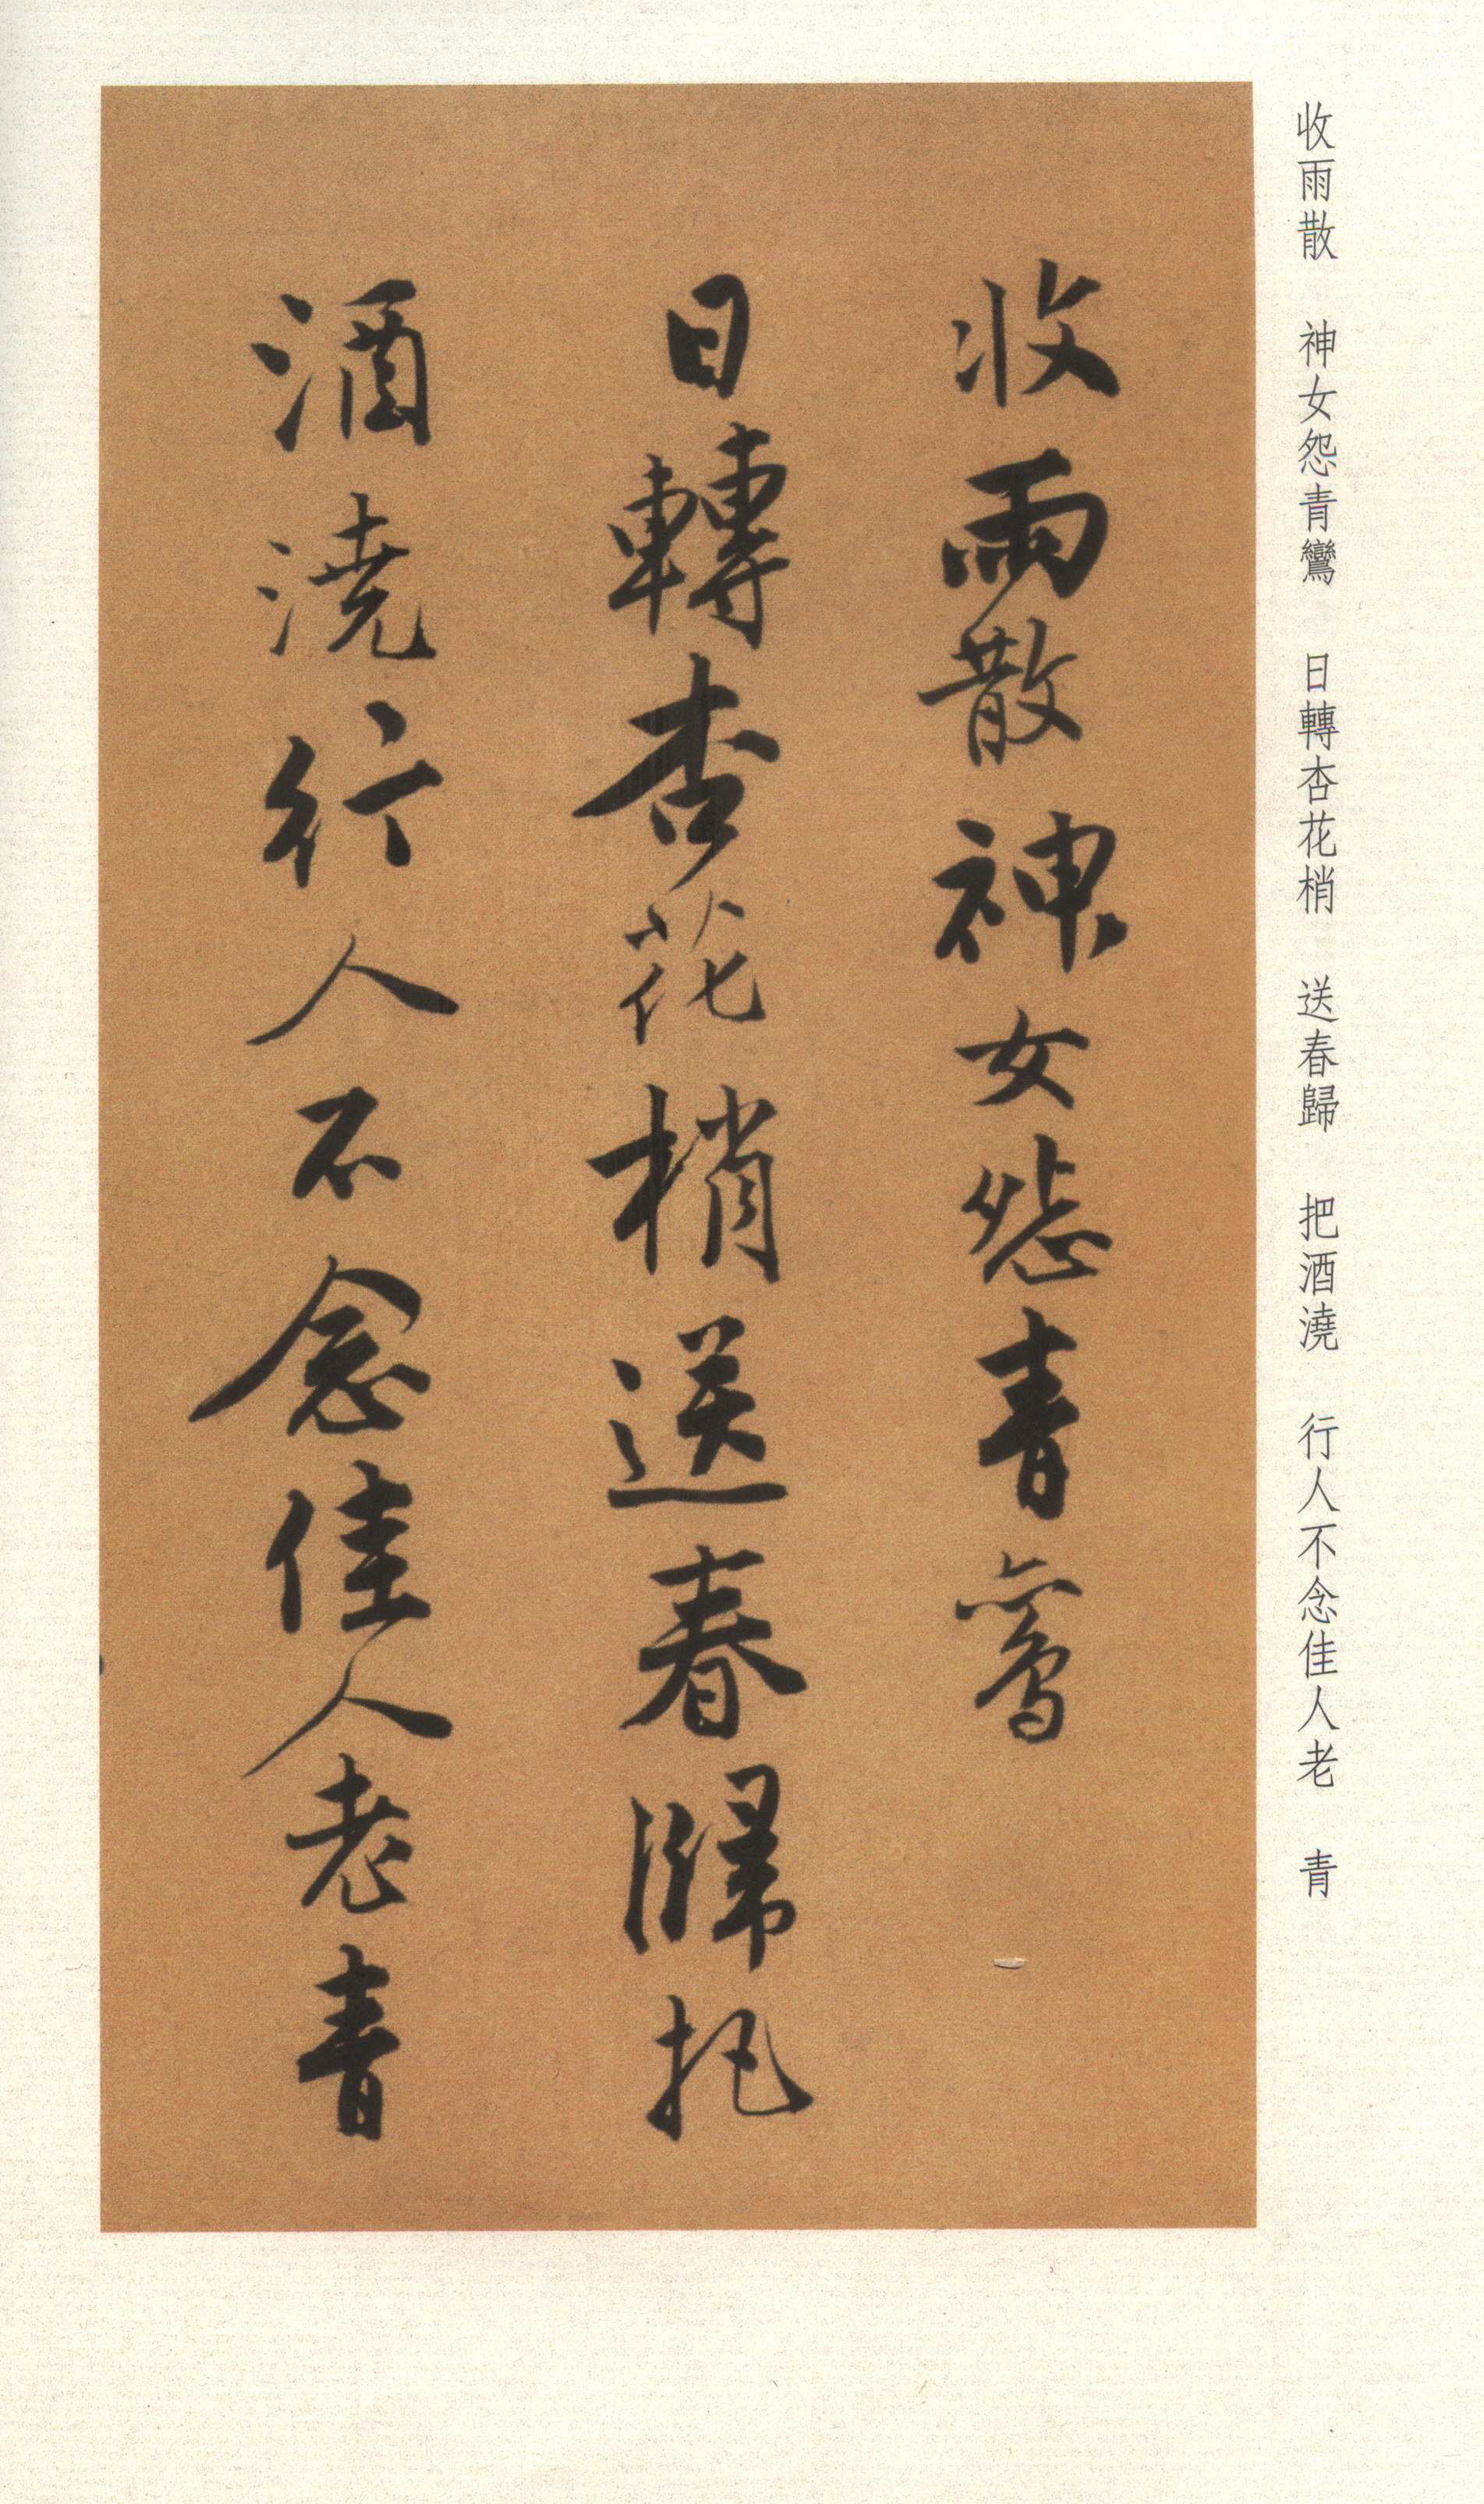 收雨散　神女怨青鸞　日轉杏花梢　送春歸　把酒澆　行人不念佳人老　青
收雨散神女怨青鸞
日轉杏花梢送春歸把
酒澆行人不念佳人老青